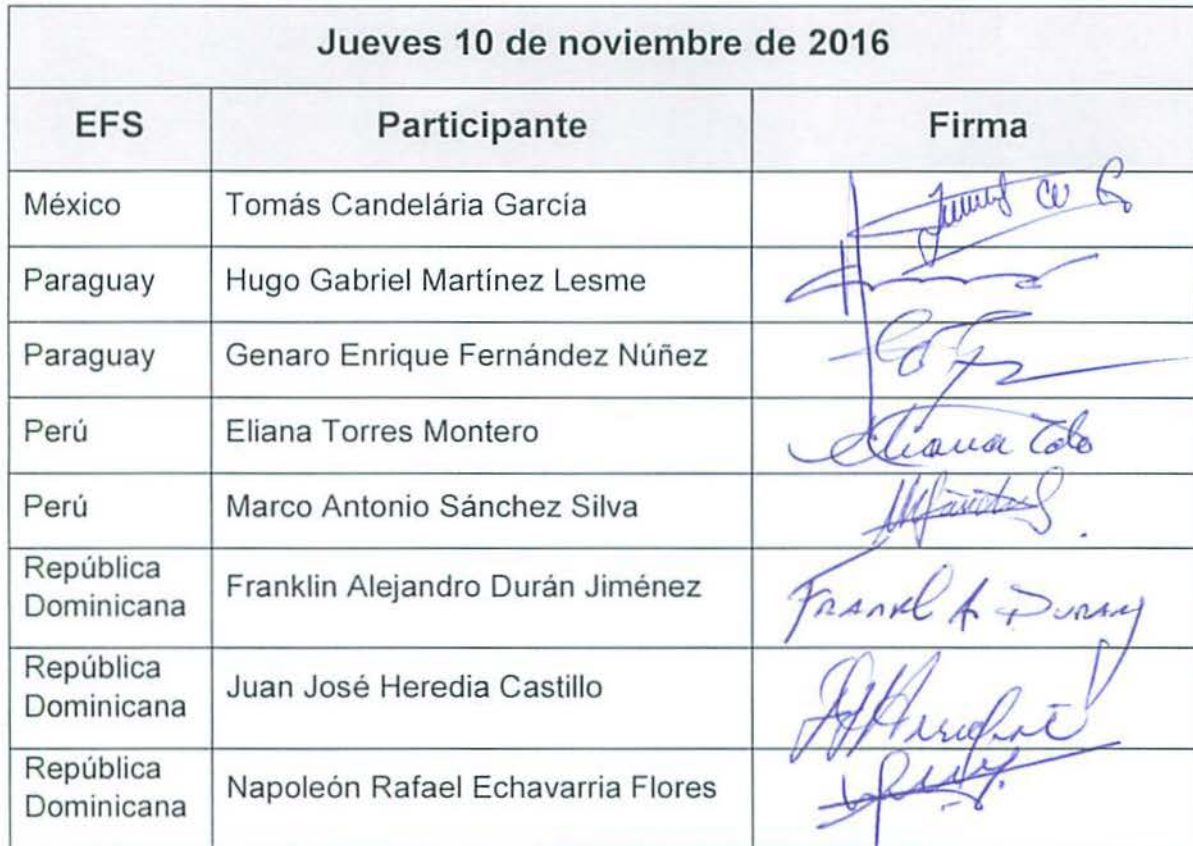 Jueves 10 de noviembre de 2016
EFS Participante Firma
México Tomás Candelária García
Paraguay Hugo Gabriel Martínez Lesme
Paraguay Genaro Enrique Fernández Núñez
Perú Eliana Torres Montero Eliana
Perú Marco Antonio Sánchez Silva
República
Dominicana
Franklin Alejandro Durán Jiménez
Frankl A Duran
República
Dominicana
Juan José Heredia Castillo
República
Dominicana
Napoleón Rafael Echavarria Flores